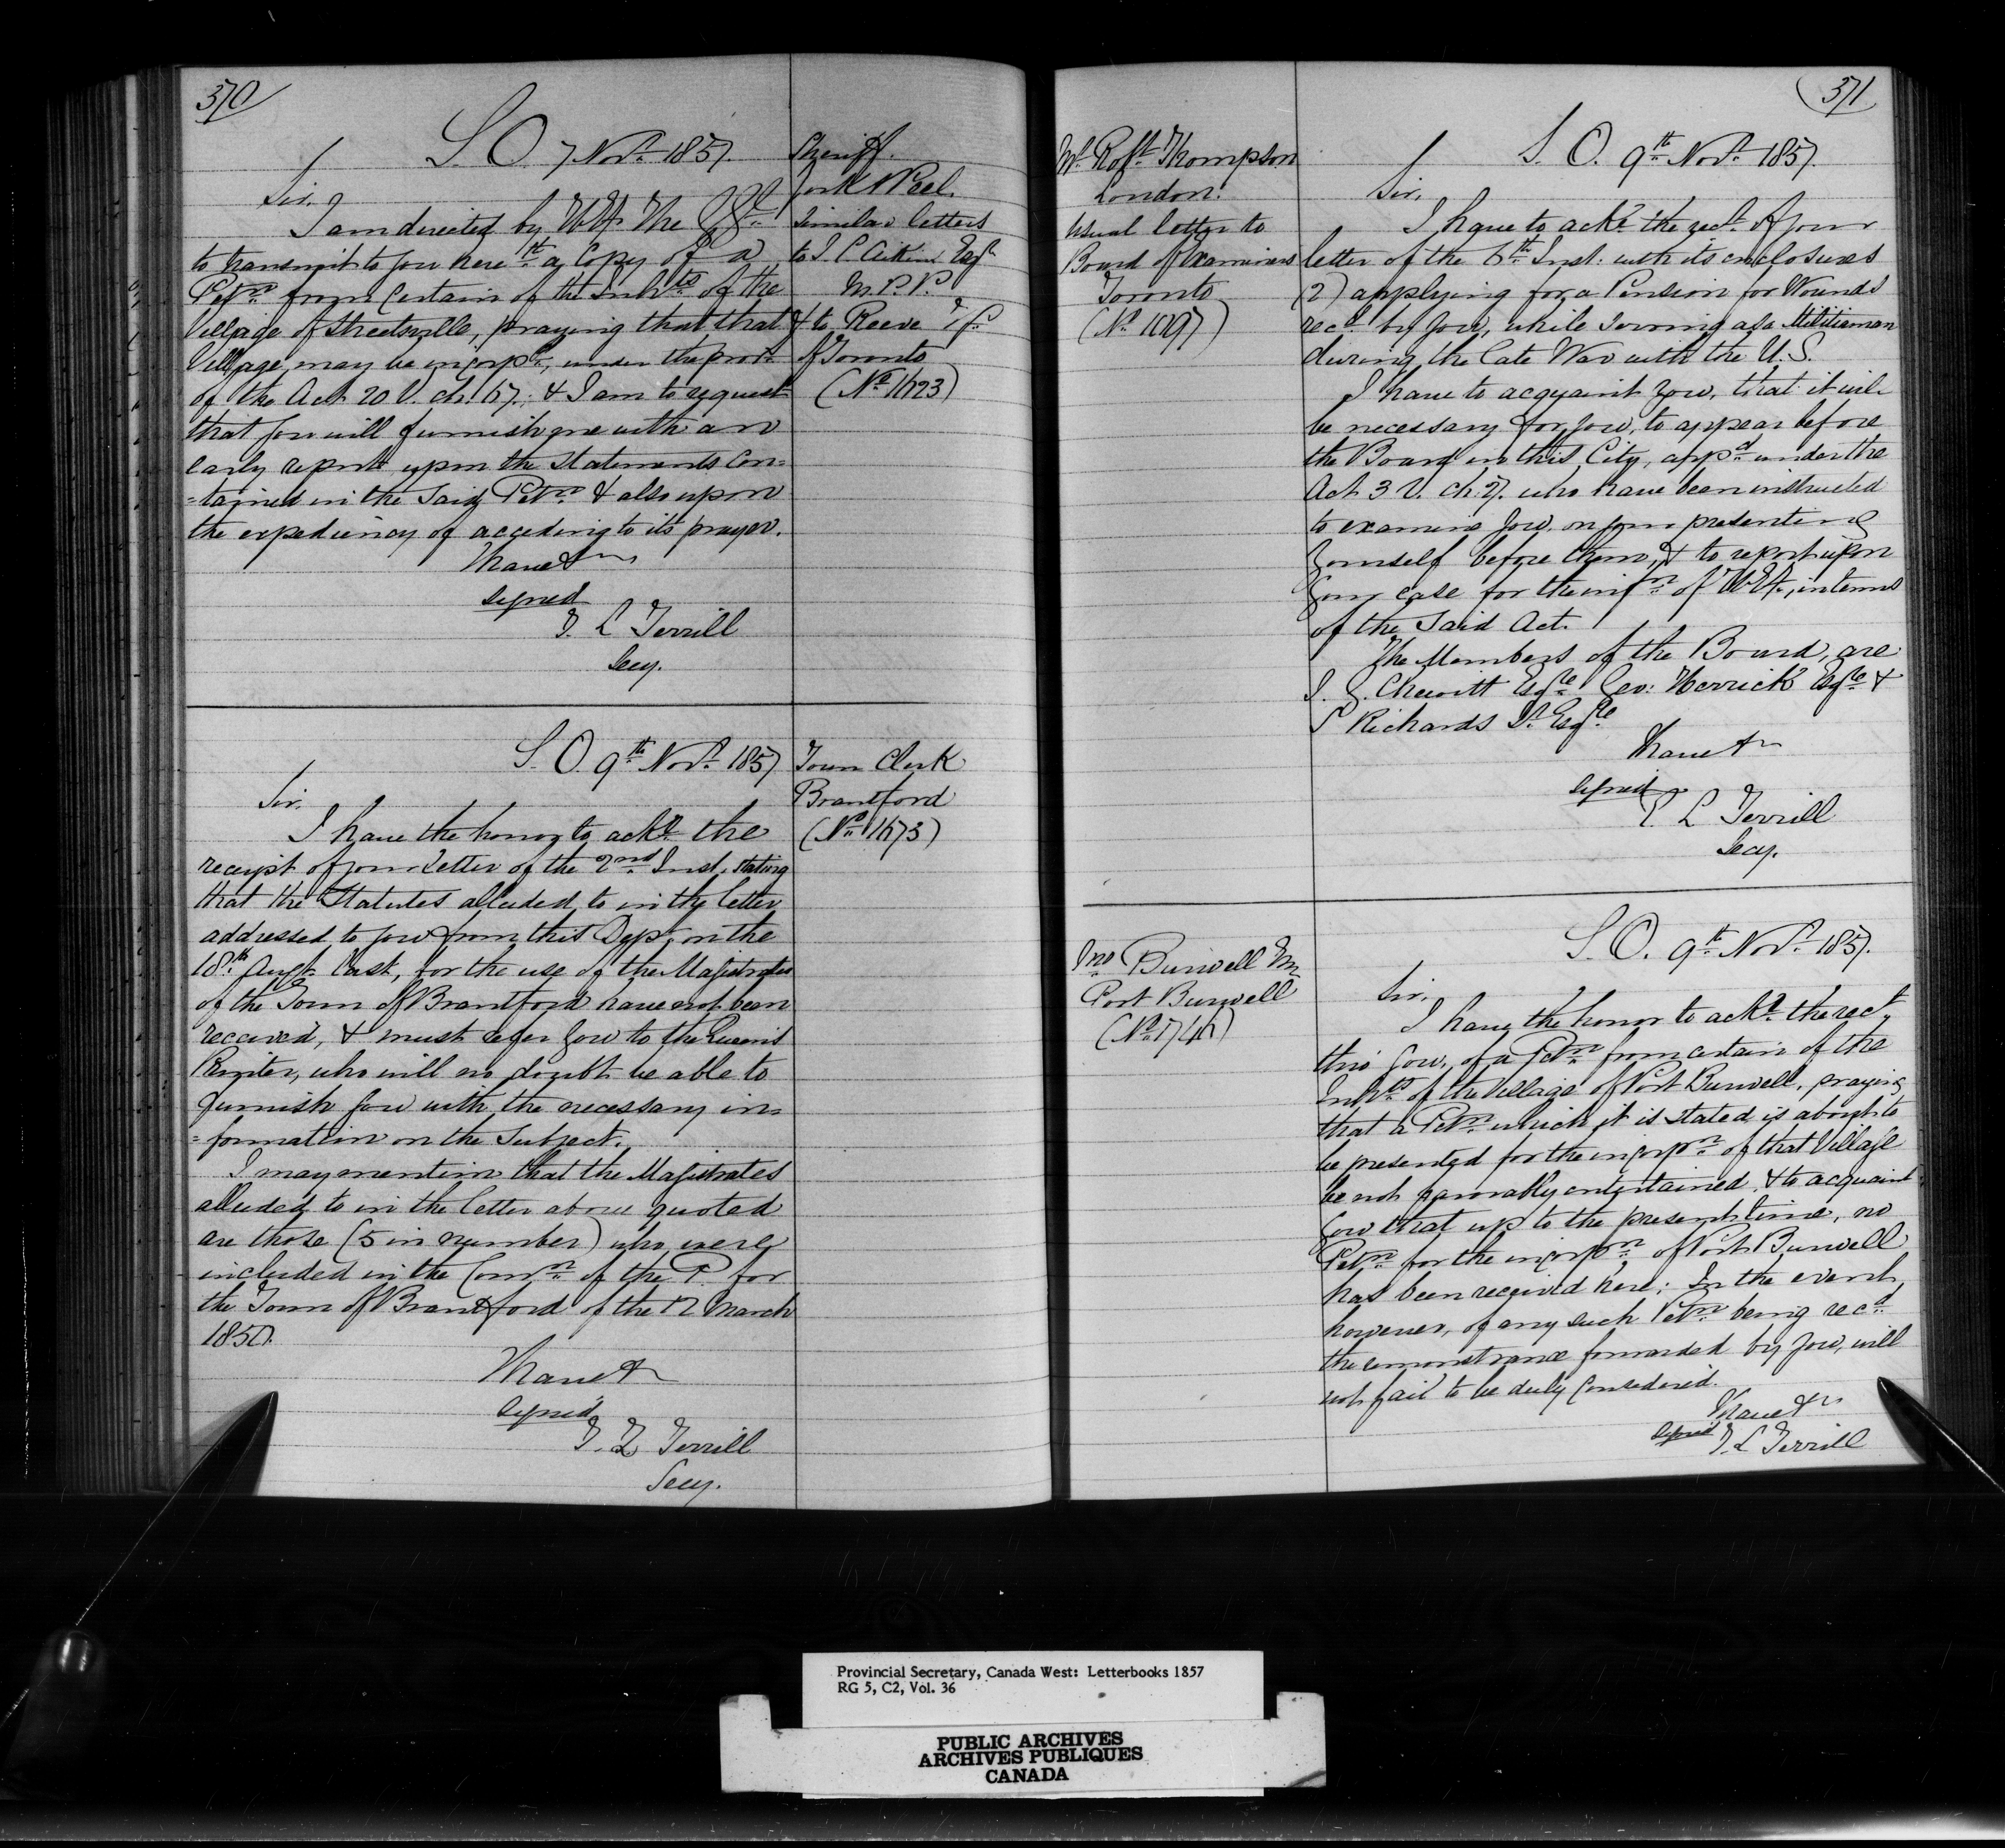 370
S. O. 7 Novr. 1857.
Sheriff
York & Peel.
Similar letters
to J C Aikins Esqr
M.P.P.
& to Reeve Tp.
of Toronto
(No. 1623)
Sir,
I am directed by H E the
to transmit to you herewth a Copy of a
Petn. from Certain of the Inhts of the
Village of Streetsville, praying that that
Village may be incorpd., under the provns
of the Act 20 V. ch. 67, & I am to request
that you will furnish me with an
early report upon the Statements Con=
=tained in the said Petn. & also upon
the expediency of acceding to its prayer.
I have &c
Signed
T. L Terrill
Secy.
S. O. 9th Novr. 1857
Town Clerk
Brantford
(No. 1673)
Sir,
I have the honor to acke. the
receipt of your Letter of the 2nd Inst. stating
that the Statutes alluded to in the letter
addressed to you from this Dept. on the
18th Augt. last, for the use of the Magistrates
of the Town of Brantford have not been
received, & must refer you to the Queen's
Printer, who will no doubt be able to
furnish you with the necessary in=
=formation on the Subject.
I may mention that the Magistrates
alluded to in the letter above quoted
are those (5 in number) who were
included in the Comn. of the P. for
the Town of Brantford of the 12 March
1857.
I have &c
Signed
T. L Terrill
Secy.
371
Mr. Robt. Thompson
London.
Usual letter to
Board of Examiners
Toronto
(No. 1097)
S. O. 9th Novr. 1857.
Sir,
I have to acke. the rect. of your
letter of the 6th Inst: with its enclosures
(2) applying for a Pension for Wounds
recd. by you, while serving as a Militiaman
during the late War with the U. S.
I have to acquaint you, that it will
be necessary for you, to appear before
the Board in this City, appd. under the
Act 3 V. ch. 7. who have been instructed
to examine you on your presenting
yourself before them, & to report upon
your case for the infn. of H.E., in terms
of the said Act.
The Members of the Board, are
J. G. Chewitt Esqre. Geo: Herrick Esqre. &
S Richards Sr. Esqre.
I have &c
Signed
T. L Terrill
Secy.
Jno Burwell
Port Burwell
(No. 1746)
S. O. 9th Novr. 1857.
Sir,
I have the honor to acke. the rect.,
thro' you, of a Petn. from certain of the
Inhts. of the Village of Port Burwell, praying
that a Petn. which it is stated, is about to
be presented for the incorpn. of that Village
be not favorably entertained, & to acquaint
you that up to the present time, no
Petn. for the incorpn. of Port Burwell
has been received here; In the event,
however, of any such Petn. being recd.
the remonstrance forwarded by you, will
not fail to be duly Considered.
I have &c
Signed T. L Terrill
Provincial Secretary, Canada West: Letterbooks 1857
RG 5, C2, Vol. 36
PUBLIC ARCHIVES
ARCHIVES PUBLIQUES
CANADA